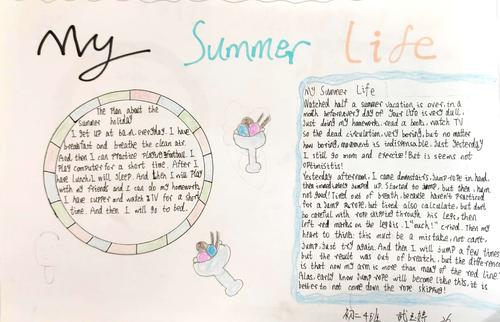 My Summer Life
The Plan about the
Summer holiday
I get up at 6a.m. everyday. I have
breakfast and breathe the clean air.
And then I can practice playing football. I
Play computer for a short time. After I
have lunch, I will sleep. And then I will play
with my friends and I can do my homework.
I have supper and watch TV for a short
time. And then I will go to bed.
My Summer Life
Watched half a summer vacation is over, in a
month before every day of your life is very dull,
Just doing my homework, read a book, watch TV
so the dead circulation, very boring, but no matter
how boring, movement is indispensable, Just Yesterday
I still go mom and exercise! But is seems not
optimistic!
Yesterday afternoon, I came downstairs, jump rope in hand,
then immediately jumped up. Started to jump, but then,
not good! Tired out of breath, because haven't practiced
for a jump rope, but tired also calculate, but don't
be careful with rope skipped through his legs, then
left red marks on the legs is. I "ouch!" cried. Then my
heart to think: this must be a mistake, not can't
jump. Just try again. And then I will jump a few times
but the result was out of breath, but the difference
is that now my arm is more than many of the red line.
Alas, early know jump rope will become like this, it is
better to not come down the rope skipping!
初二4班